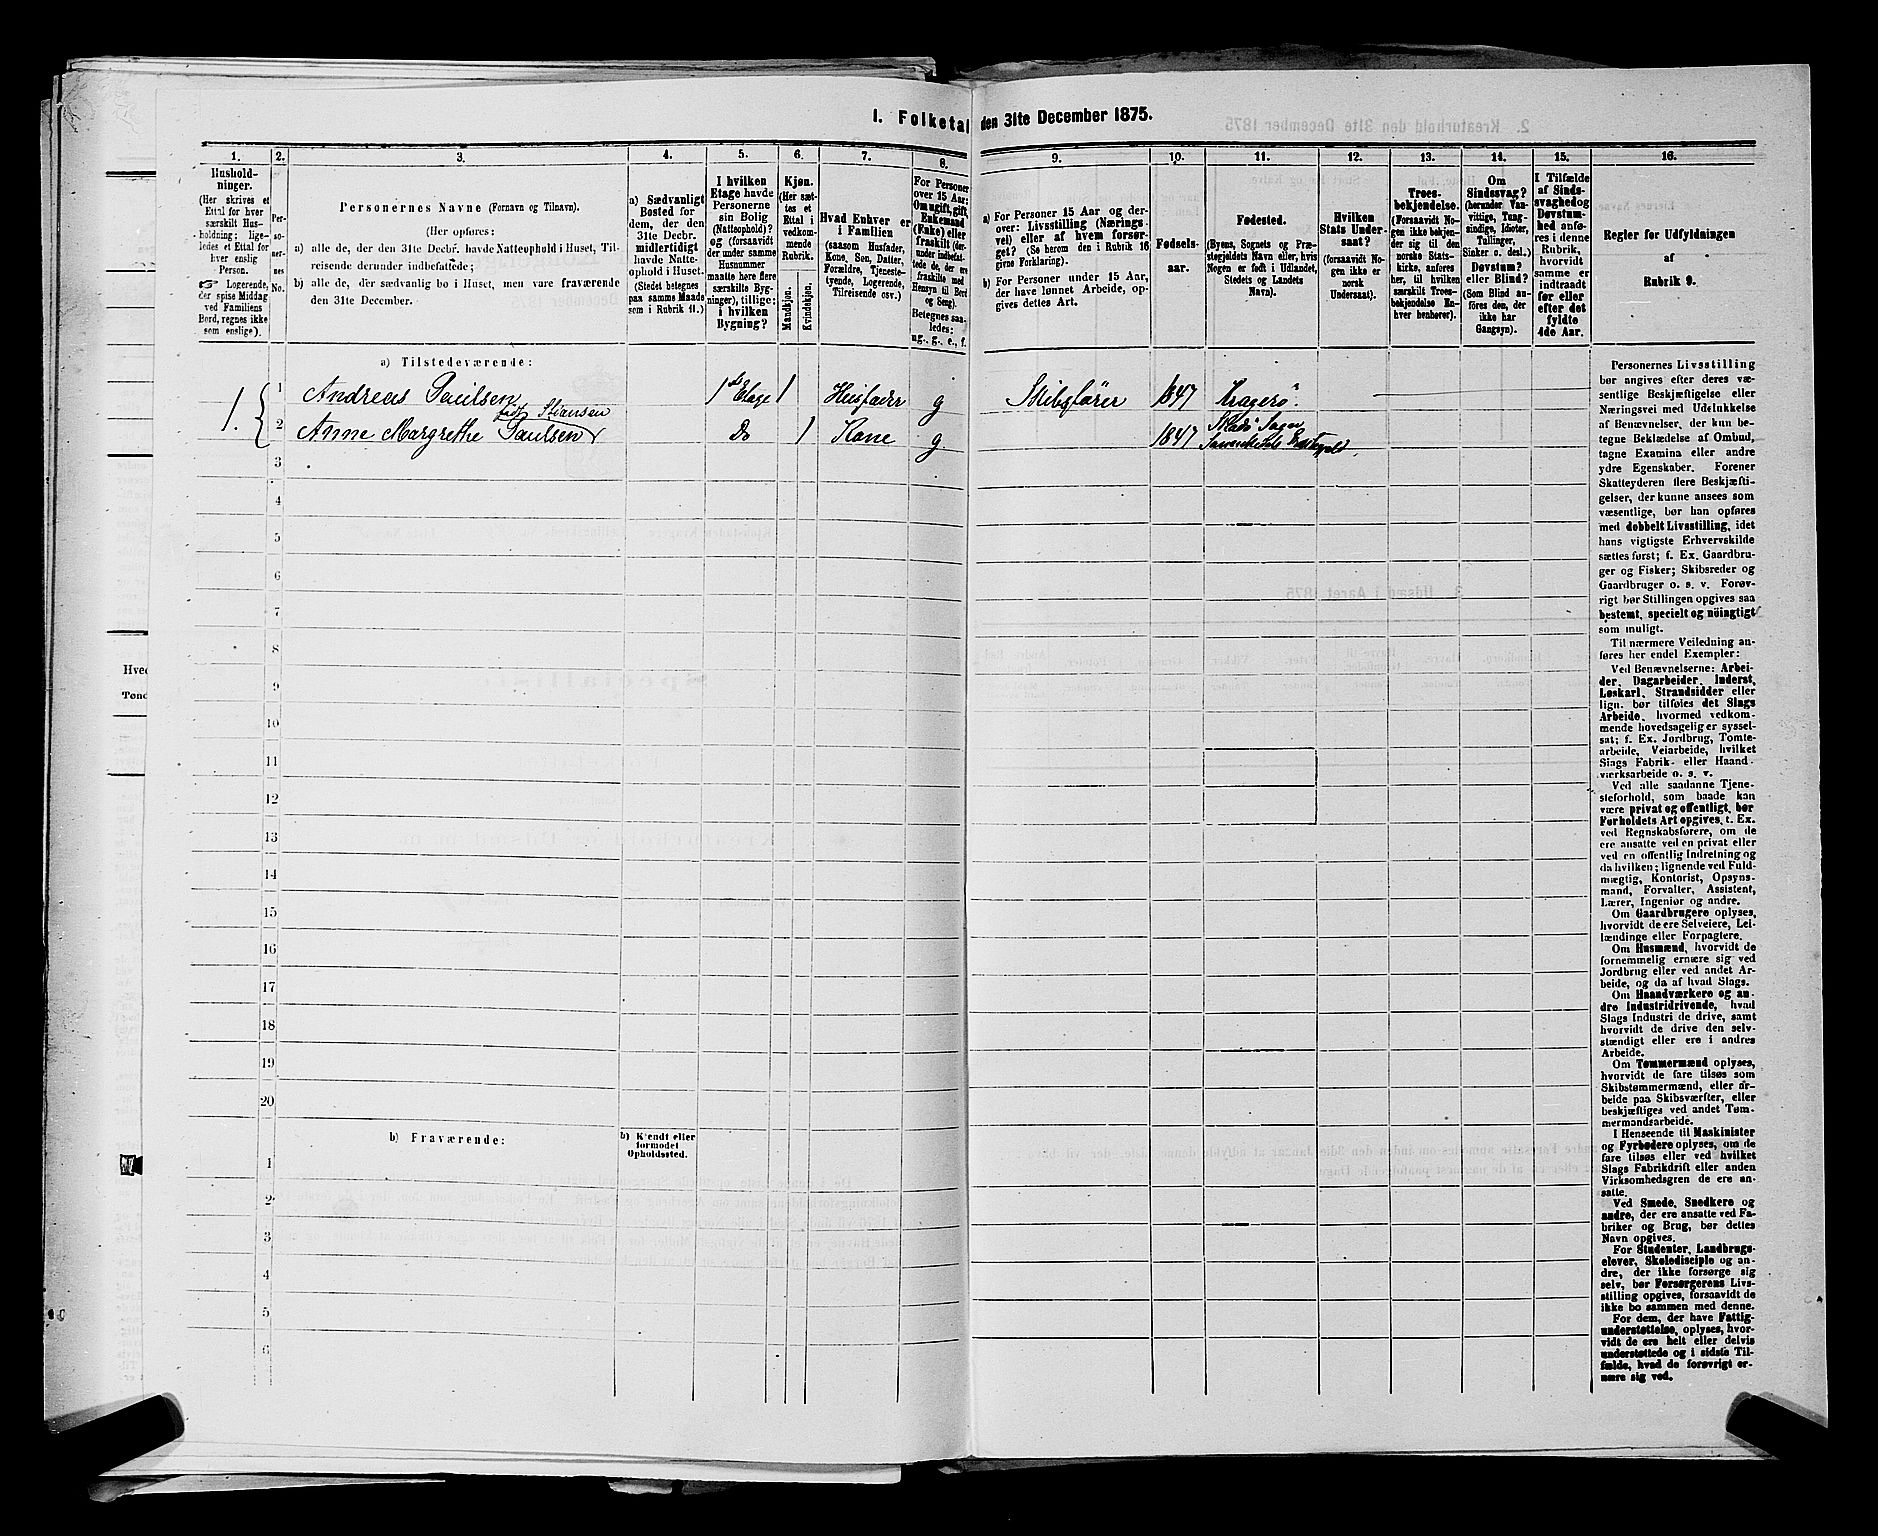 1. Folketal den 31te December 1875.
1. 2. 3. 4. 5. 6. 7. 8. 9. 10. 11. 12. 13. 14. 15. 16.
Hushold-
ninger.
(Her skrives et
Ettal for hver
særskilt Hus-
holdning; lige-
ledes et Ettal for
hver enslig
Person.
☞ Logerende,
der spise Middag
ved Familiens
Bord, regnes ikke
som enslige).
Per-
so-
ner-
nes
No.
Personernes Navne (Fornavn og Tilnavn).
(Her opføres:
a) alle de, der den 31te Decbr. havde Natteophold i Huset, Til-
reisende derunder indbefattede;
b) alle de, der sædvanlig bo i Huset, men vare fraværende
den 31te December.
a) Sædvanligt
Bosted for
dem, der den
31te Decbr.
midlertidigt
havde Natte-
ophold i Huset.
(Stedet betegnes
paa samme Maade
som i Rubrik 11.)
I hvilken
Etage havde
Personerne
sin Bolig
(Natteophold)?
og (forsaavidt
der under samme
Husnummer
maatte høre flere
særskilte Byg-
ninger), tillige:
i hvilken
Bygning?
Kjøn.
(Her sæt-
tes et
Ettal i
vedkom-
mende
Rubrik.
Mandkjøn.
Kvindekjøn.
Hvad Enhver er
i Familien
(saasom Husfader,
Kone, Søn, Datter,
Forældre, Tjeneste-
tyende, Logerende,
Tilreisende osv.)
For Personer
over 15 Aar:
Om ugift, gift,
Enkemand
(Enke) eller
fraskilt (der-
under indbefat-
tede de, der ere
fraskilte med
Hensyn til Bord
og Seng).
Betegnes saa-
ledes:
ug., g., e., f.
a) For Personer 15 Aar og der-
over: Livsstilling (Nærings-
vei) eller af hvem forsør-
get? (Se herom den i Rubrik 16
givne Forklaring).
b) For Personer under 15 Aar,
der have lønnet Arbeide, op-
gives dettes Art.
Fødsels-
aar.
Fødested.
(Byens, Sognets og Præ-
stegjeldets Navn eller, hvis
Nogen er født i Udlandet,
Stedets og Landets
Navn).
Hvilken
Stats Under-
saat?
(forsaavidt No-
gen ikke er
norsk
Undersaat).
Troes-
bekjendelse.
(Forsaavidt No-
gen ikke bekjen-
der sig til den
norske Stats-
kirke, anføres
her, til hvilken
særskilt Troes-
bekjendelse En-
hver henhører).
Om
Sindssvag?
(herunder Van-
vittige, Tung-
sindige, Idioter,
Tullinger,
Sinker o. desl.)
Døvstum?
eller Blind?
(Som Blind an-
føres den, der
ikke har
Gangsyn).
I Tilfælde
af Sinds-
svaghed og
Døvstum-
hed anfø-
res i denne
Rubrik,
hvorvidt
samme er
indtraadt
før eller
efter det
fyldte
4de Aar.
Regler for Udfyldningen
af
Rubrik 9.
a) Tilstedeværende:
1. 1 Andreas Paulsen 1ste Etage 1 Husfader g Skibsfører 1847 Kragerø.
født Stiansen
2 Anne Margrethe Paulsen Do 1 Kone g 1847 Skadø Sogn
3
4
5
6
7
8
9
10
11
12
13
14
15
16
17
18
19
20
b) Fraværende:
b) Kjendt eller
formodet
Opholdssted.
1
2
3
4
5
6
Personernes Livsstilling
bør angives efter deres væ-
sentlige Beskjæftigelse eller
Næringsvei med Udelukkelse
af Benævnelser, der kun be-
tegne Beklædelse af Ombud,
tagne Examina eller andre
ydre Egenskaber. Forener
Skatteyderen flere Beskjæfti-
gelser, der kunne ansees som
væsentlige, bør han opføres
med dobbelt Livsstilling, idet
hans vigtigste Erhvervskilde
sættes først; f. Ex. Gaardbru-
ger og Fisker; Skibsreder og
Gaardbruger o. s. v. Forøv-
rigt bør Stillingen opgives saa
bestemt, specielt og nöiagtigt
som muligt.
Til nærmere Veiledning an-
føres her endel Exempler:
Ved Benævnelserne: Arbei-
der, Dagarbeider, Inderst,
Løskarl, Strandsidder eller
lign. bør tilføies det Slags
Arbeide, hvormed vedkom-
mende hovedsagelig er syssel-
sat; f. Ex. Jordbrug, Tomte-
arbeide, Veiarbeide, hvilket
Slags Fabrik- eller Haand-
værksarbeide o. s. v.
Ved alle saadanne Tjene-
steforhold, som baade kan
være privat og offentligt, bør
Forholdets Art opgives, t. Ex.
ved Regnskabsførere, om de
ere ansatte ved en privat eller
ved en offentlig Indretning og
da hvilken; lignende ved Fuld-
mægtig, Kontorist, Opsyns-
mand, Forvalter, Assistent,
Lærer, Ingeniør og andre.
Om Gaardbrugere oplyses,
hvorvidt de ere Selveiere, Lei-
lændinge eller Forpagtere.
Om Husmænd, hvorvidt de
fornemmelig ernære sig ved
Jordbrug eller ved andet Ar-
beide, og da af hvad Slags.
Om Haandværkere og an-
dre Industridrivende, hvad
Slags Industri de drive, samt
hvorvidt de drive den selv-
stændigt eller ere i andres
Arbeide.
Om Tømmermænd oplyses,
hvorvidt de fare tilsøs som
Skibstømmermænd, eller ar-
beide paa Skibsværfter, eller
beskjæftiges ved andet Tøm-
mermandsarbeide.
I Henseende til Maskinister
og Fyrbødere oplyses, om de
fare tilsøs eller ved hvilket
Slags Fabrikdrift eller anden
Virksomhedsgren de ere an-
satte.
Ved Smede, Snedkere og
andre, der ere ansatte ved Fa-
briker og Brug, bør dettes
Navn opgives.
For Studenter, Landbrugs-
elever, Skoledisciple og an-
dre, der ikke forsørge sig
selv, bør Forsørgerens Livs-
stilling opgives, forsaavidt de
ikke bo sammen med denne.
For dem, der have Fattig-
understøttelse, oplyses, hvor-
vidt de ere helt eller delvis
understøttede og i sidste Til-
fælde, hvad de forøvrigt er-
nære sig ved.
Hved
Tønd